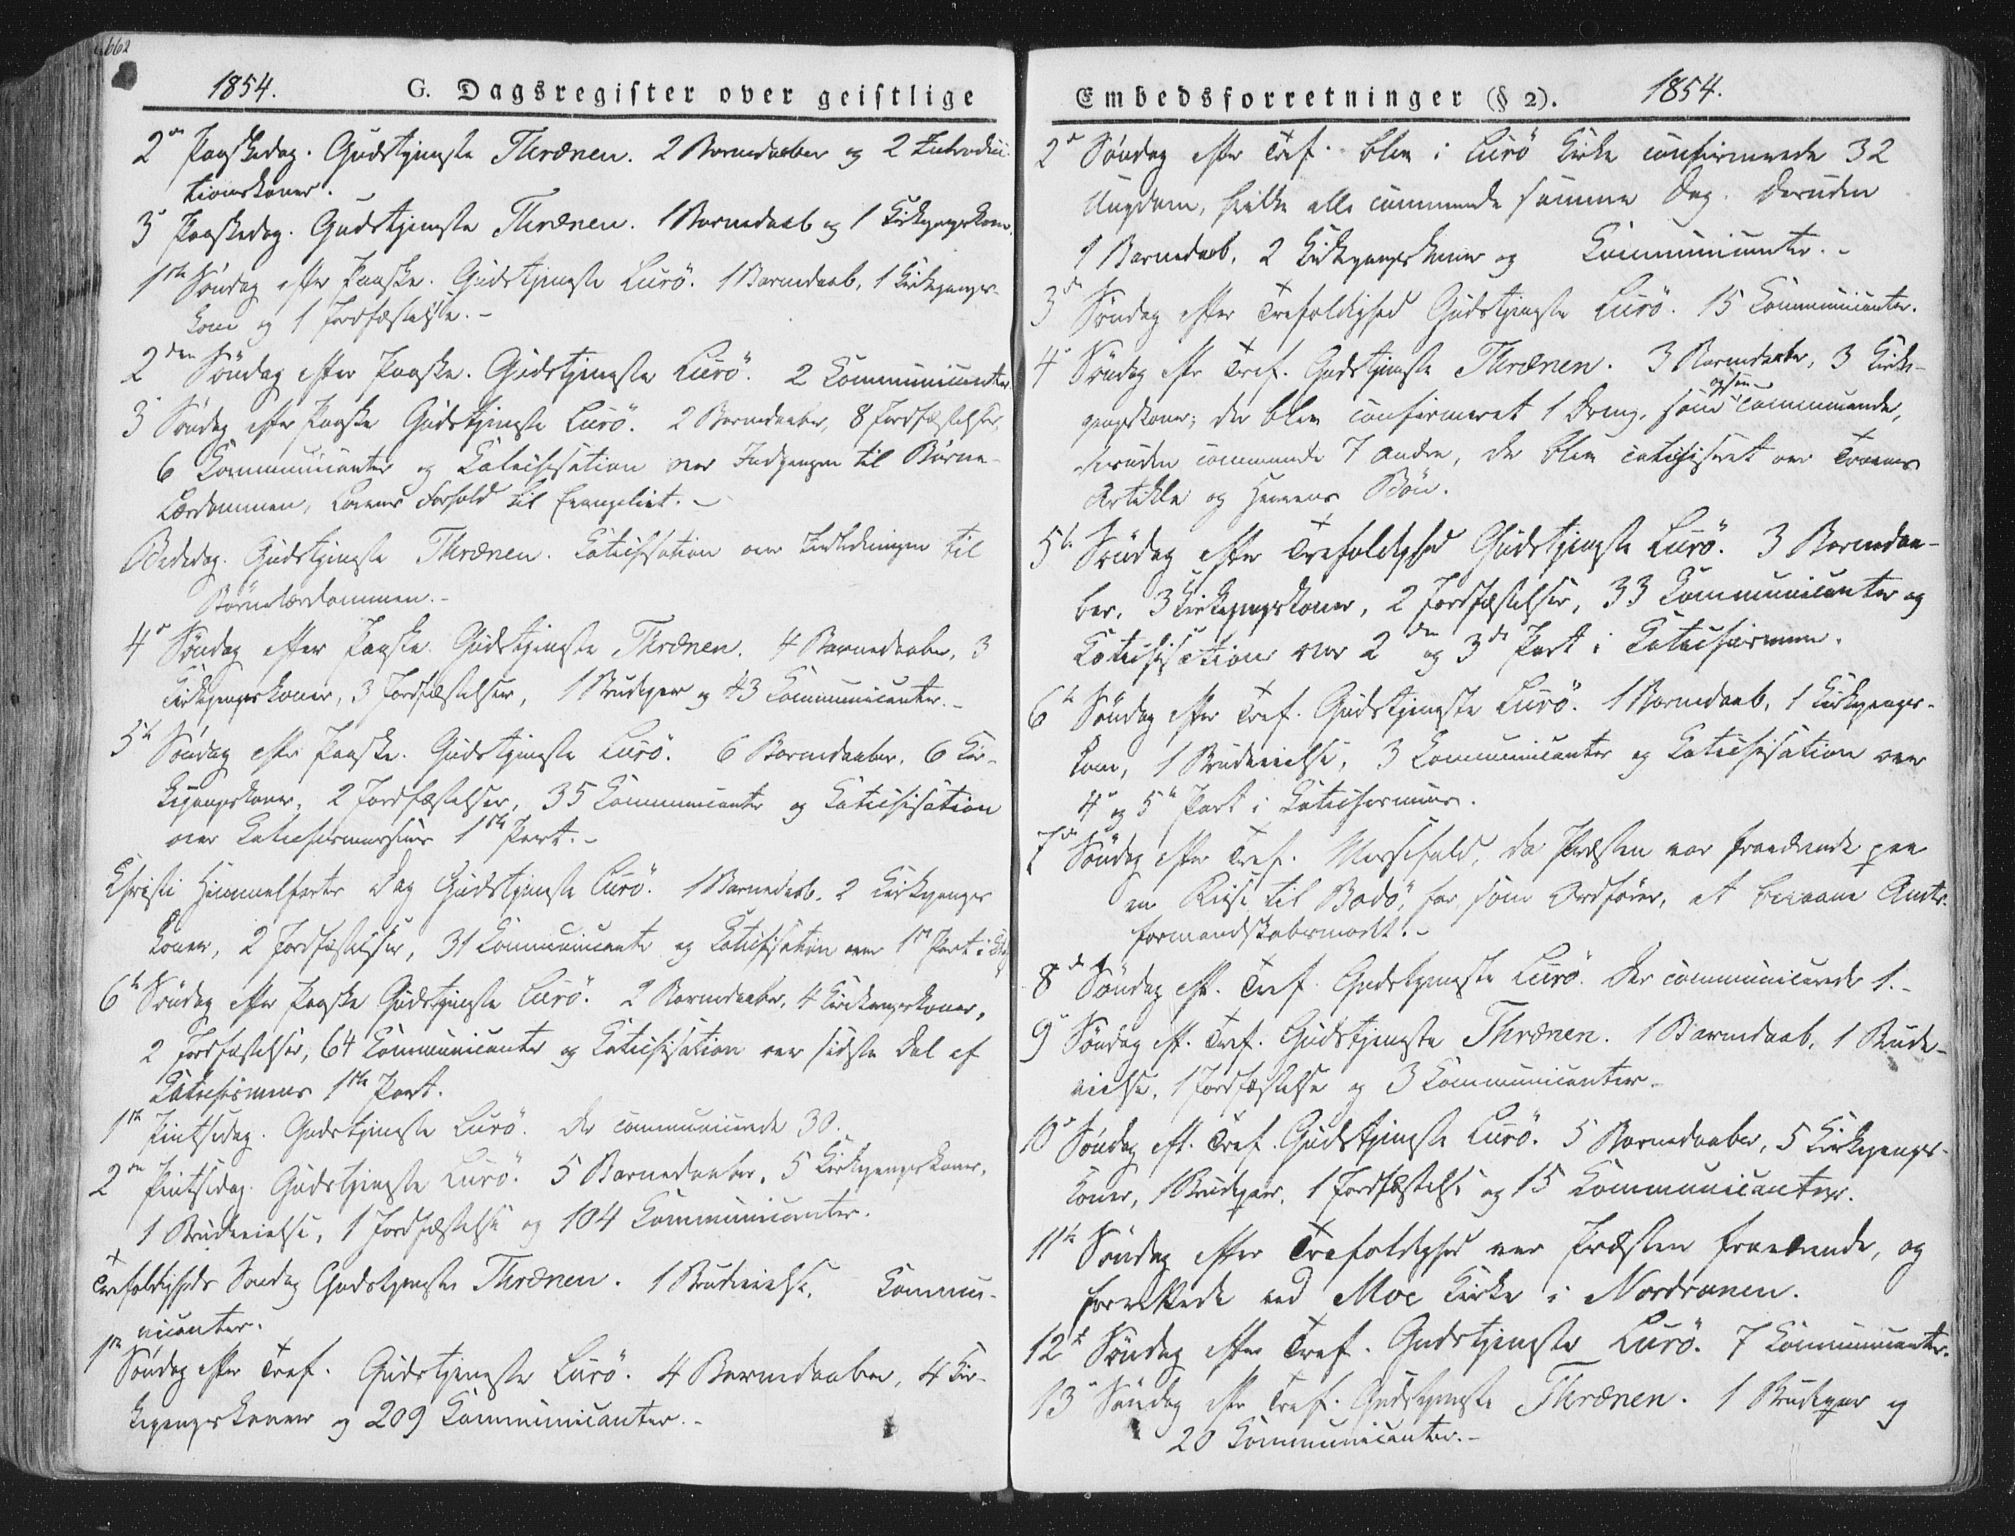 662
1854. G. Dagsregister over geistlige
2den Paaskedag. Gudstjeneste Thrænen. 2 Barnedaaber og 2 Introduc-
tionskoner.
3' Paaskedag. Gudstjeneste Thrænen. 1 Barnedaab og 1 Kirkegangskone.
1ste Søndag efter Paaske. Gudstjeneste Lurö. 1 Barnedaab, 1 Kirkegangs-
kone og 1 Jordfæstelse.-
2den Søndag efter Paaske. Gudstjeneste Lurö. 2 Communicanter
3' Søndag efter Paaske Gudstjeneste Lurö. 2 Barnedaaber, 8 Jordfæstelser,
6 Communicanter og Catechisation over Indgangen til Børne-
Lærdommen, Lovens Forhold til Evangeliet.-
Bededag. Gudstjeneste Thrænen. Catechisation over Indledningen til
Børnelærdommen.-
4' Søndag efter Paaske. Gudstjeneste Thrænen. 4 Barnedaaber, 3
Kirkegangskoner, 3 Jordfæstelser, 1 Brudepar og 43 Communicanter.-
5te Søndag efter Paaske. Gudstjeneste Lurö. 6 Barnedaaber, 6 Kir-
kegangskoner, 2 Jordfæstelser, 35 Communicanter og Catechisation
over Catechismussens 1ste Part.-
Christi Himmelfarts Dag Gudstjeneste Lurö. 1 Barnedaab, 2 Kirkegangs
koner, 2 Jordfæstelser, 31 Communicanter og Catechisation over 1ste Part i
6te Søndag efter Paaske Gudstjeneste Lurö. 2 Barnedaaber, 4 Kirkegangskoner,
2 Jordfæstelser, 64 Communicanter og Catechisation over sidste Del af
Catechismus 1ste Part.
1ste Pintsedag. Gudstjeneste Lurö. Der communicerede 30.
2den Pintsedag. Gudstjeneste Lurö. 5 Barnedaaber, 5 Kirkegangskoner,
1 Brudevielse, 1 Jordfæstelse og 104 Communicanter.
Trefoldigheds Søndag Gudstjeneste Thrænen. 1 Brudevielse, Commu-
nicanter.
1ste Søndag efter Tref. Gudstjeneste Lurö. 4 Barnedaaber, 4 Kir-
kegangskoner og 209 Communicanter.-
Embedsforretninger (§ 2). 1854.
2' Søndag efter Tref. blev i Lurö Kirke confirmerede 32
Ungdom, hvilke alle communicerede samme Dag. Desuden
1 Barnedaab, 2 Kirkegangskoner og Communicanter.-
3de Søndag efter Trefoldighed Gudstjeneste Lurö. 15 Communicanter.
4' Søndag efter Tref. Gudstjeneste Thrænen. 3 Barnedaaber, 3 Kirke-
gangskoner; der blev confirmeret 1 Dreng, som ogsaa communicerede,
desuden communicerede 7 andre, der blev catechiseret over Troens
Artikle og Herrens Bön.
5te Søndag efter Trefoldighed Gudstjeneste Lurö. 3 Barnedaa-
ber, 3 Kirkegangskoner, 2 Jordfæstelser, 33 Communicanter og
Catechisation over 2den og 3de Part i Catechismen.
6te Søndag efter Tref. Gudstjeneste Lurö. 1 Barnedaab, 1 Kirkegangs-
kone, 1 Brudevielse, 3 Communicanter og Catechisation over
4' og 5te Part i Catechismus.
7de Søndag efter Tref. Messefald, da Præsten var fraværende paa
en Reise til Bodö, for, som Ordförer, at bivaane Amts-
formandskabsmødet.-
8de Søndag eft. Tref. Gudstjeneste Lurö. Der communicerede 1.-
9' Søndag eft. Tref. Gudstjeneste Thrænen. 1 Barnedaab, 1 Brude-
vielse, 1 Jordfæstelse og 3 Communicanter.-
10' Søndag eft. Tref. Gudstjeneste Lurö. 5 Barnedaaber, 5 Kirkegangs-
koner, 1 Brudepar, 1 Jordfæstelse og 15 Communicanter.
11te Søndag efter Trefoldighed var Præsten fraværende, og
forrettede ved Moe Kirke i Nordranen.
12te Søndag efter Tref. Gudstjeneste Lurö. 7 Communicanter.
13' Søndag efter Tref. Gudstjeneste Thrænen. 1 Brudepar og
20 Communicanter.-